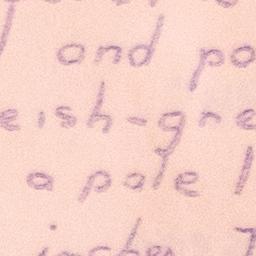 and po
eish-gre
a pale l
inches